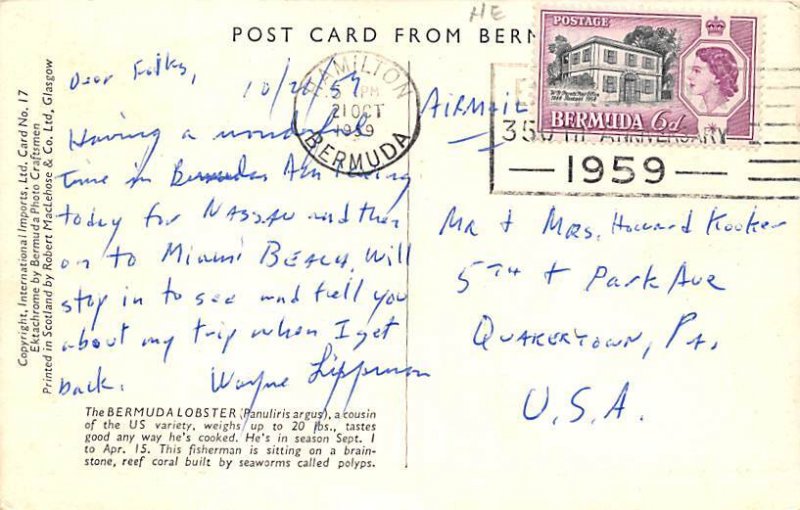 POST CARD FROM BERM
HE
POSTAGE
BERMUDA 6d
HAMILTON
5 PM
21 OCT
1959
BERMUDA
350TH ANNIVERSARY
1959
AIRMAIL
Dear Folks,
10/21/59
Having a wonderful
time in Bermuda. Am taking
today for NASSAU and then
on to MIAMI BEACH. Will
stop in to see and tell you
about my trip when I get
back. Wayne Lippman
Mr + Mrs. Howard Kooker
5TH + Park Ave
QUAKERTOWN, Pa.
U.S.A.
The BERMUDA LOBSTER (Panuliris argus), a cousin
of the US variety, weighs up to 20 lbs., tastes
good any way he's cooked. He's in season Sept. 1
to Apr. 15. This fisherman is sitting on a brain-
stone, reef coral built by seaworms called polyps.
Copyright, International Imports, Ltd. Card No. 17
Ektachrome by Bermuda Photo Craftsmen
Printed in Scotland by Robert MacLehose & Co. Ltd, Glasgow